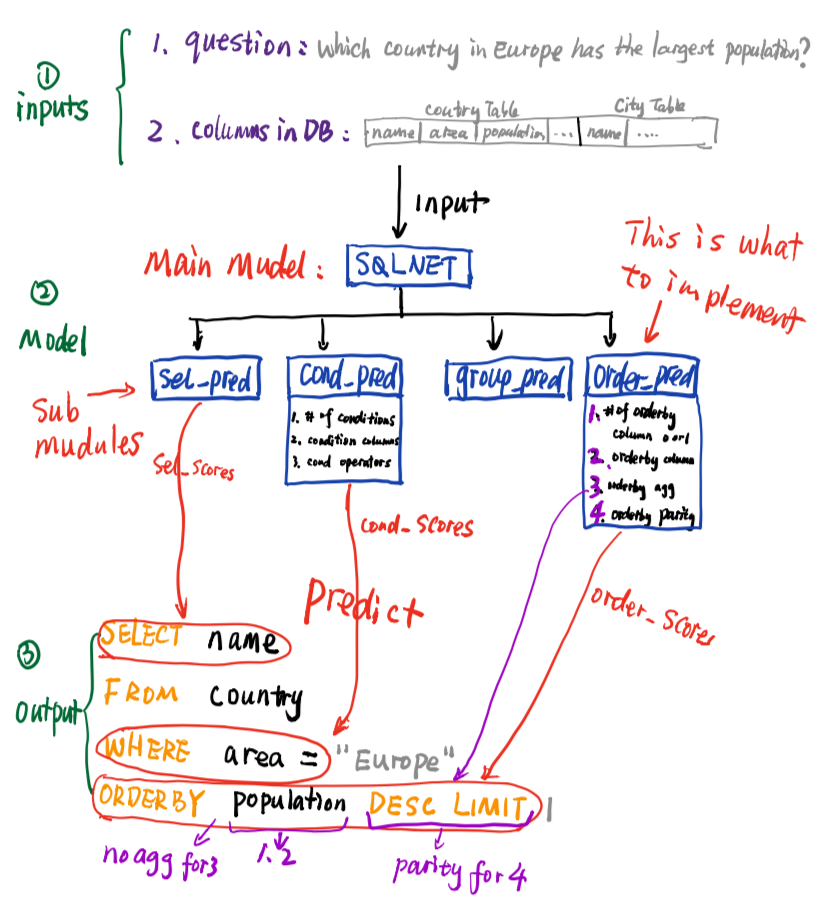 1. question: which country in Europe has the largest population?
① inputs
Coutry Table
City Table
2. columns in DB: name area population ... name ....
input
Main Mudel: SQLNET
This is what
to implement
②
Model
sel_pred
cond_pred
group_pred
order_pred
Sub
mudules
1. # of conditions
2. condition columns
3. cond operators
1. # of orderby
column 0 or 1
2. orderby column
3. orderby agg
4. orderby parity
sel_scores
cond_scores
predict
order_scores
③
output
SELECT name
FROM country
WHERE area = "Europe"
ORDERBY population DESC LIMIT 1
no agg for 3
1. 2
parity for 4